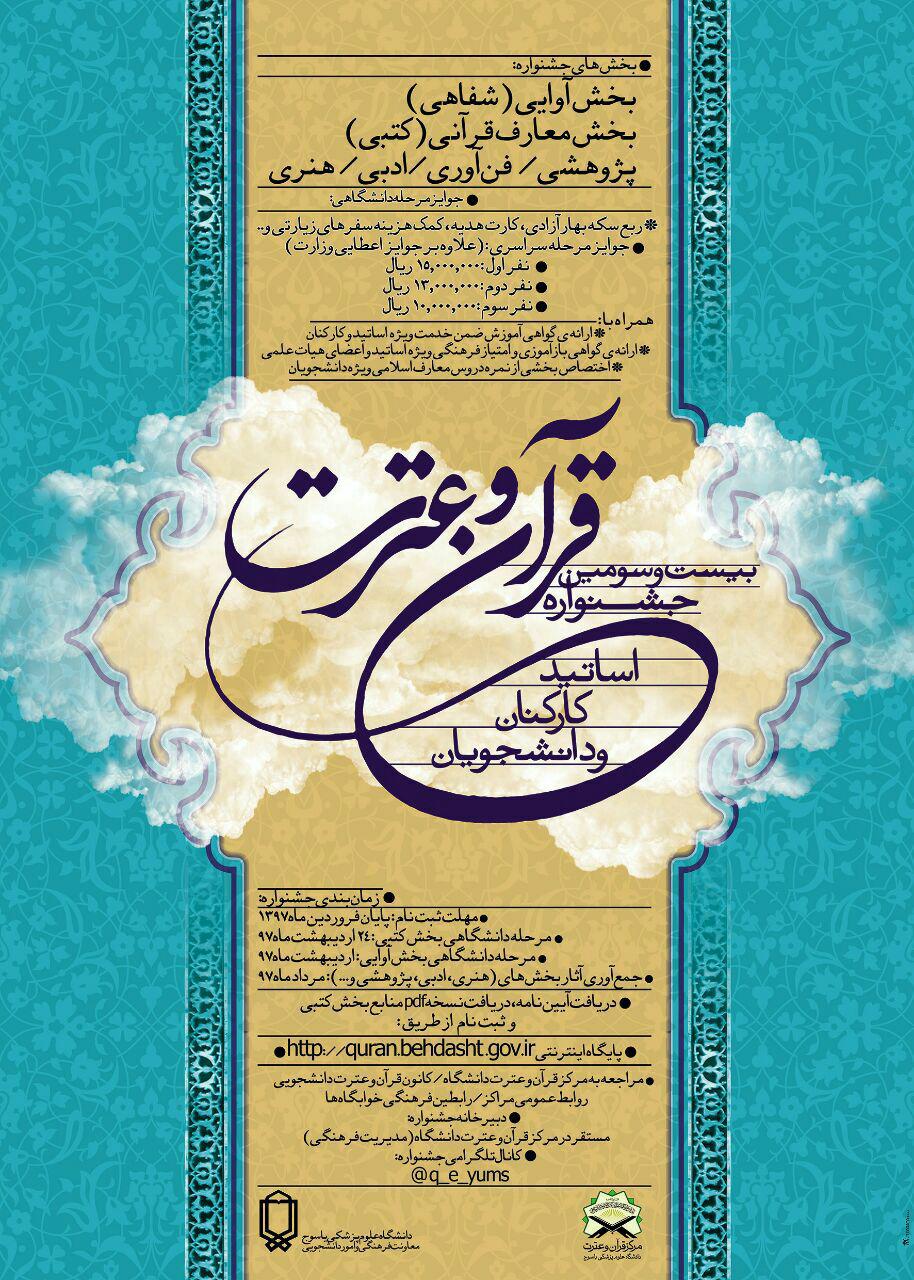 ● بخش‌های جشنواره:
بخش آوایی (شفاهی)
بخش معارف قرآنی (کتبی)
پژوهشی / فن‌آوری / ادبی / هنری
● جوایز مرحله دانشگاهی:
❋ ربع سکه بهار آزادی، کارت هدیه، کمک هزینه سفرهای زیارتی و..
● جوایز مرحله سراسری: (علاوه بر جوایز اعطایی وزارت)
● نفر اول: ۱۵,۰۰۰,۰۰۰ ریال
● نفر دوم: ۱۳,۰۰۰,۰۰۰ ریال
● نفر سوم: ۱۰,۰۰۰,۰۰۰ ریال
همراه با:
❋ ارائه‌ی گواهی آموزش ضمن خدمت ویژه اساتید و کارکنان
❋ ارائه‌ی گواهی بازآموزی و امتیاز فرهنگی ویژه اساتید و اعضای هیات علمی
❋ اختصاص بخشی از نمره دروس معارف اسلامی ویژه دانشجویان
قرآن و عترت
بیست و سومین
جشنواره
اساتید
کارکنان
و دانشجویان
● زمان‌بندی جشنواره:
● مهلت ثبت نام: پایان فروردین ماه ۱۳۹۷
● مرحله دانشگاهی بخش کتبی: ۲۴ اردیبهشت ماه ۹۷
● مرحله دانشگاهی بخش آوایی: اردیبهشت ماه ۹۷
● جمع‌آوری آثار بخش‌های (هنری، ادبی، پژوهشی و...): مرداد ماه ۹۷
● دریافت آیین نامه، دریافت نسخه pdf منابع بخش کتبی
و ثبت نام از طریق:
● پایگاه اینترنتی http://quran.behdasht.gov.ir ●
● مراجعه به مرکز قرآن و عترت دانشگاه / کانون قرآن و عترت دانشجویی
روابط عمومی مراکز / رابطین فرهنگی خوابگاه‌ها
● دبیرخانه جشنواره:
مستقر در مرکز قرآن و عترت دانشگاه (مدیریت فرهنگی)
● کانال تلگرامی جشنواره:
@q_e_yums
دانشگاه علوم پزشکی یاسوج
معاونت فرهنگی و امور دانشجویی
مرکز قرآن و عترت
دانشگاه علوم پزشکی یاسوج